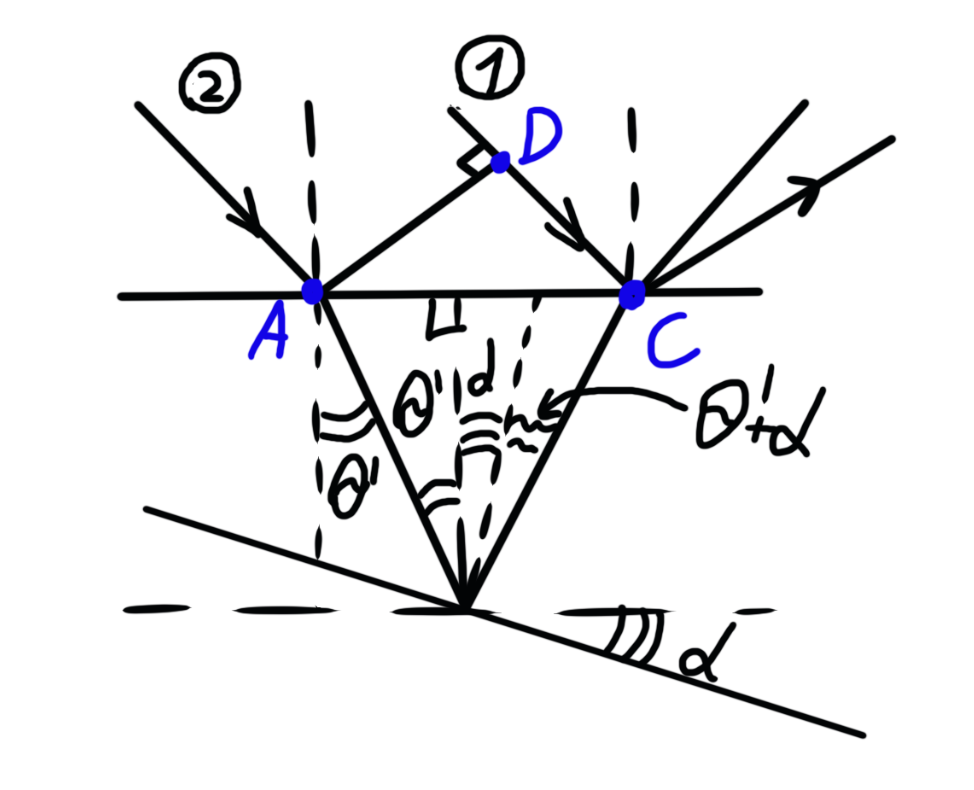 ② ①
D
A C
θ' α
θ'+α
θ'
α